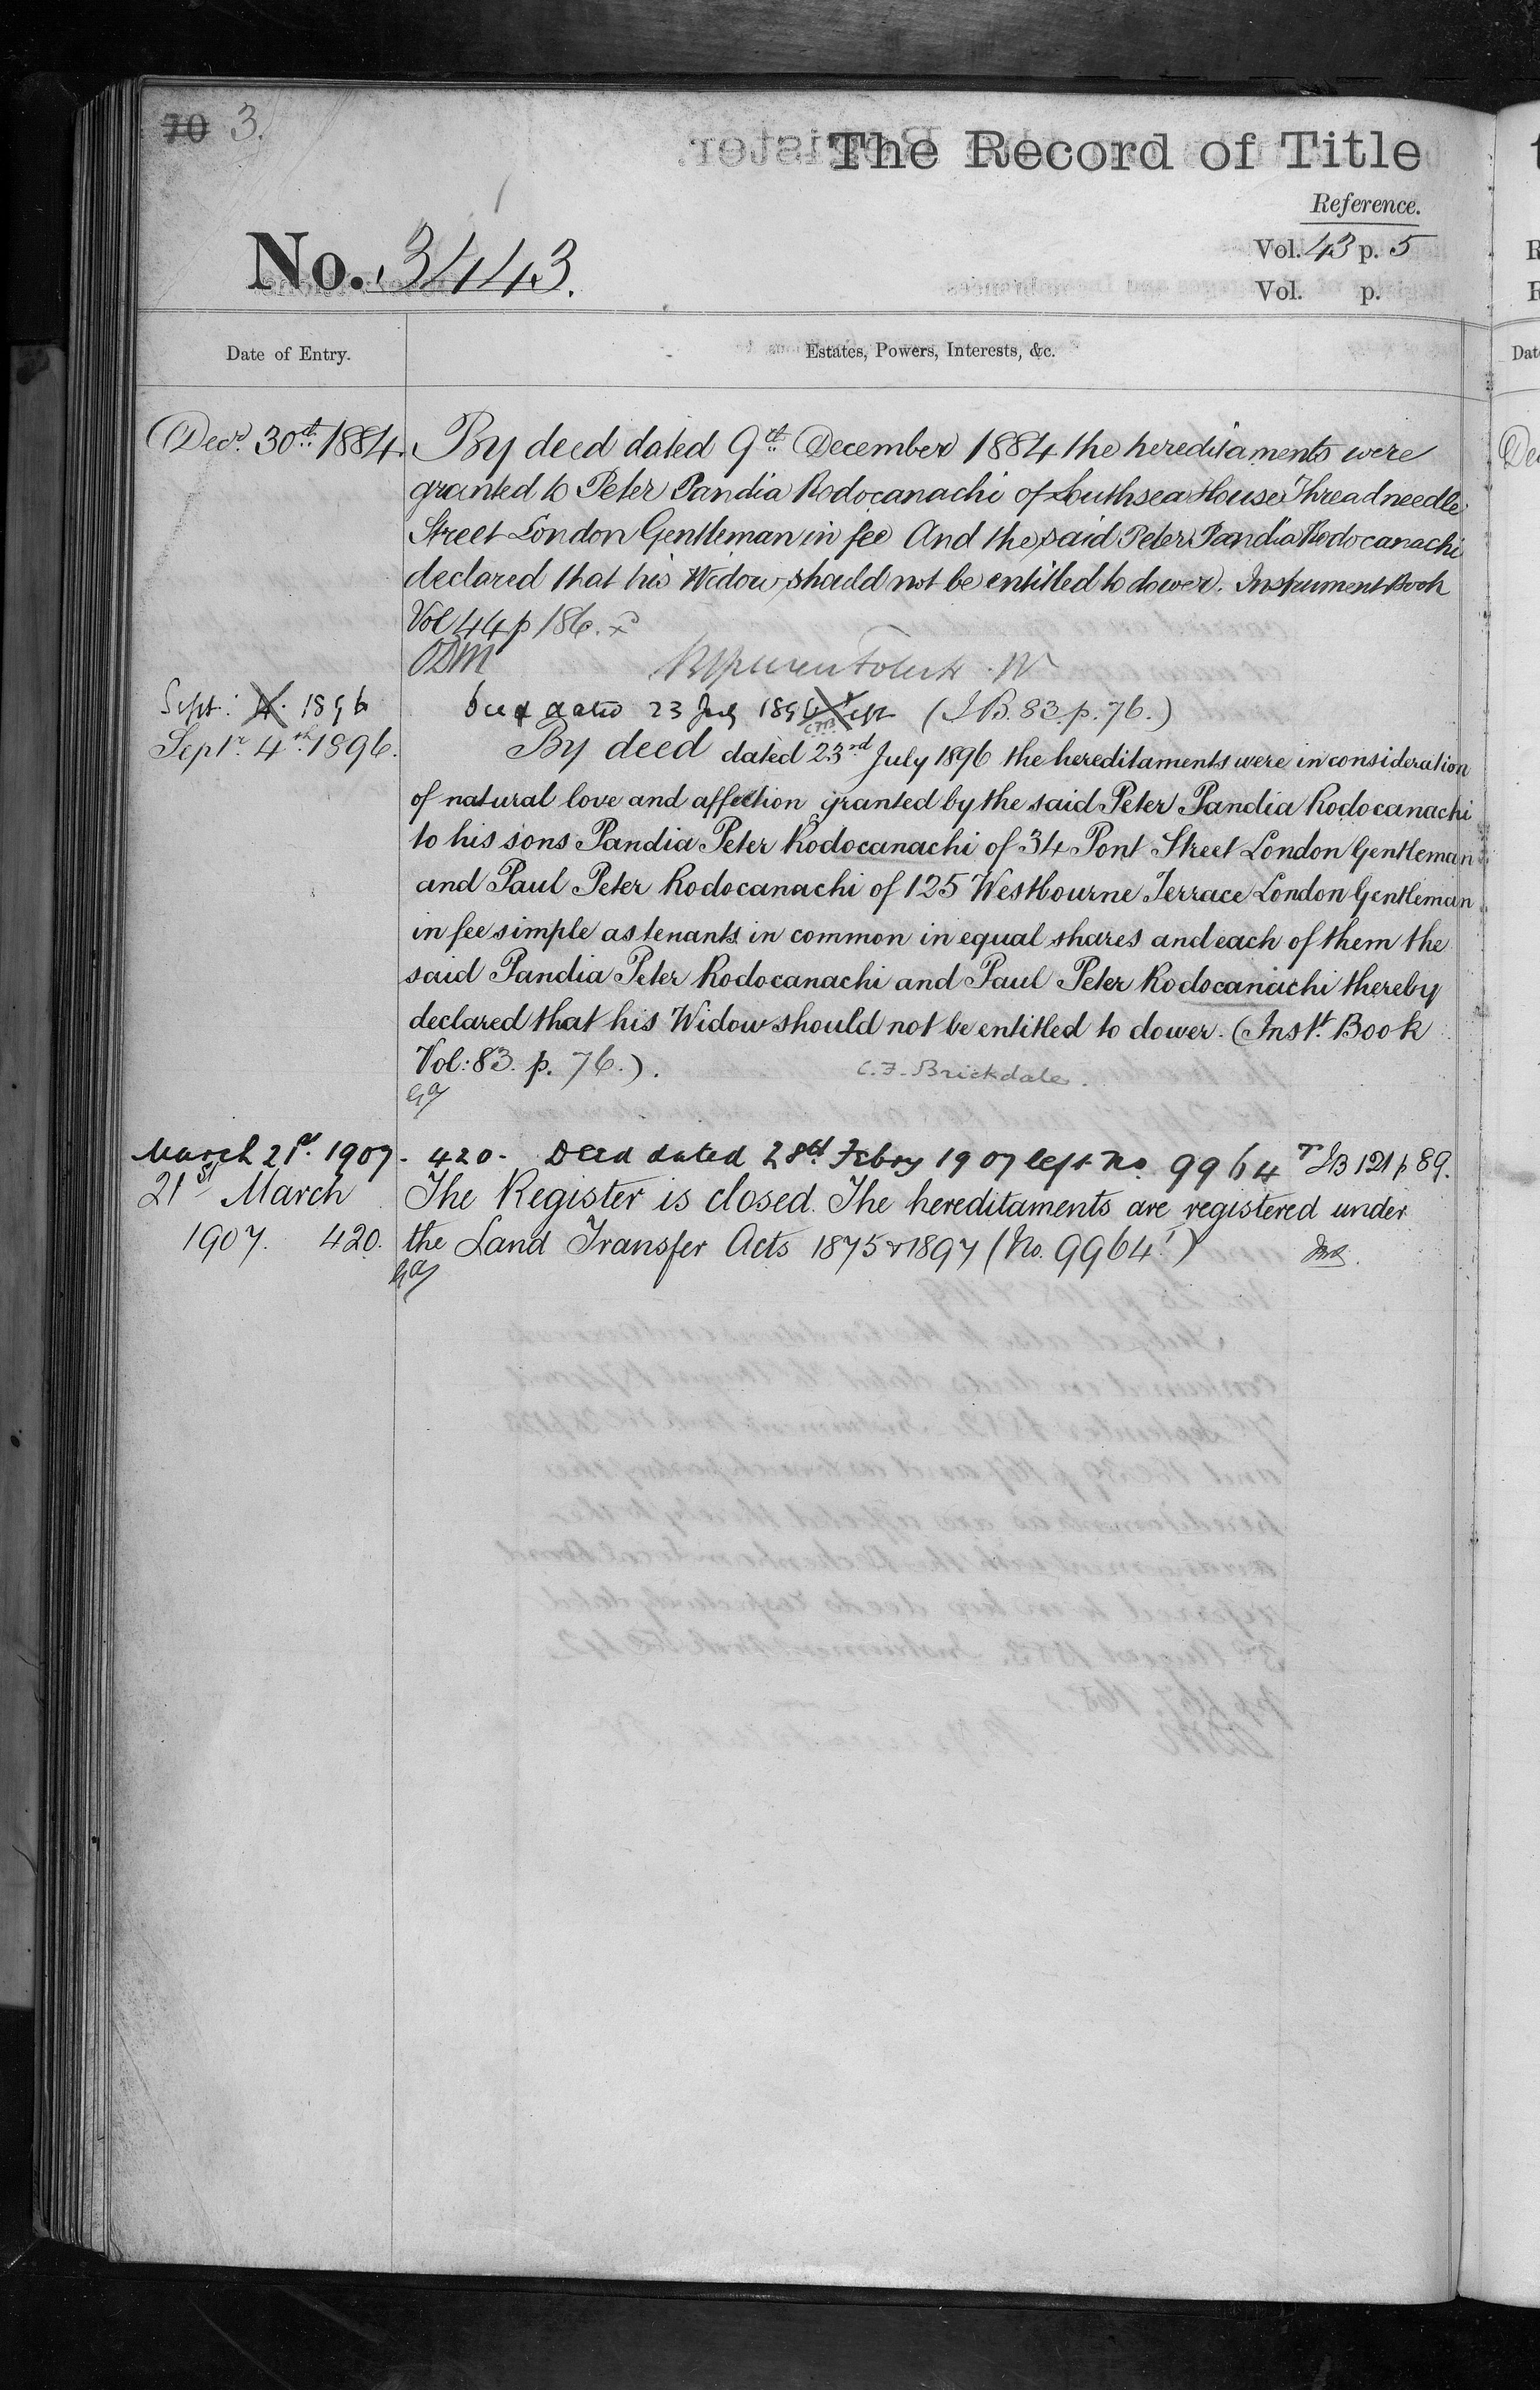 70 3.
The Record of Title
Reference.
No. 3443.
Vol. 43 p. 5
Vol. p.
Date of Entry.
Estates, Powers, Interests, &c.
Decr. 30th 1884. By deed dated 9th December 1884 the hereditaments were
granted to Peter Pandia Rodocanachi of Southsea House Threadneedle
Street London Gentleman in fee And the said Peter Pandia Rodocanachi
declared that his Widow should not be entitled to dower. Instrument Book
Vol 44 p 186.
ODM
Sept: 4. 1896 Deed dated 23 July 1896 left (I.B. 83. p. 76.)
C.F.B.
Septr. 4th 1896. By deed dated 23rd July 1896 the hereditaments were in consideration
of natural love and affection granted by the said Peter Pandia Rodocanachi
to his sons Pandia Peter Rodocanachi of 34 Pont Street London Gentleman
and Paul Peter Rodocanachi of 125 Westbourne Terrace London Gentleman
in fee simple as tenants in common in equal shares and each of them the
said Pandia Peter Rodocanachi and Paul Peter Rodocanachi thereby
declared that his Widow should not be entitled to dower. (Inst. Book
Vol: 83. p. 76.). C.F. Brickdale.
March 21st. 1907. 420. Deed dated 28th Febry 1907 left No. 9964 IB 121 p 89.
21st March The Register is closed. The hereditaments are registered under
1907. 420. the Land Transfer Acts 1875 & 1897 (No. 9964)